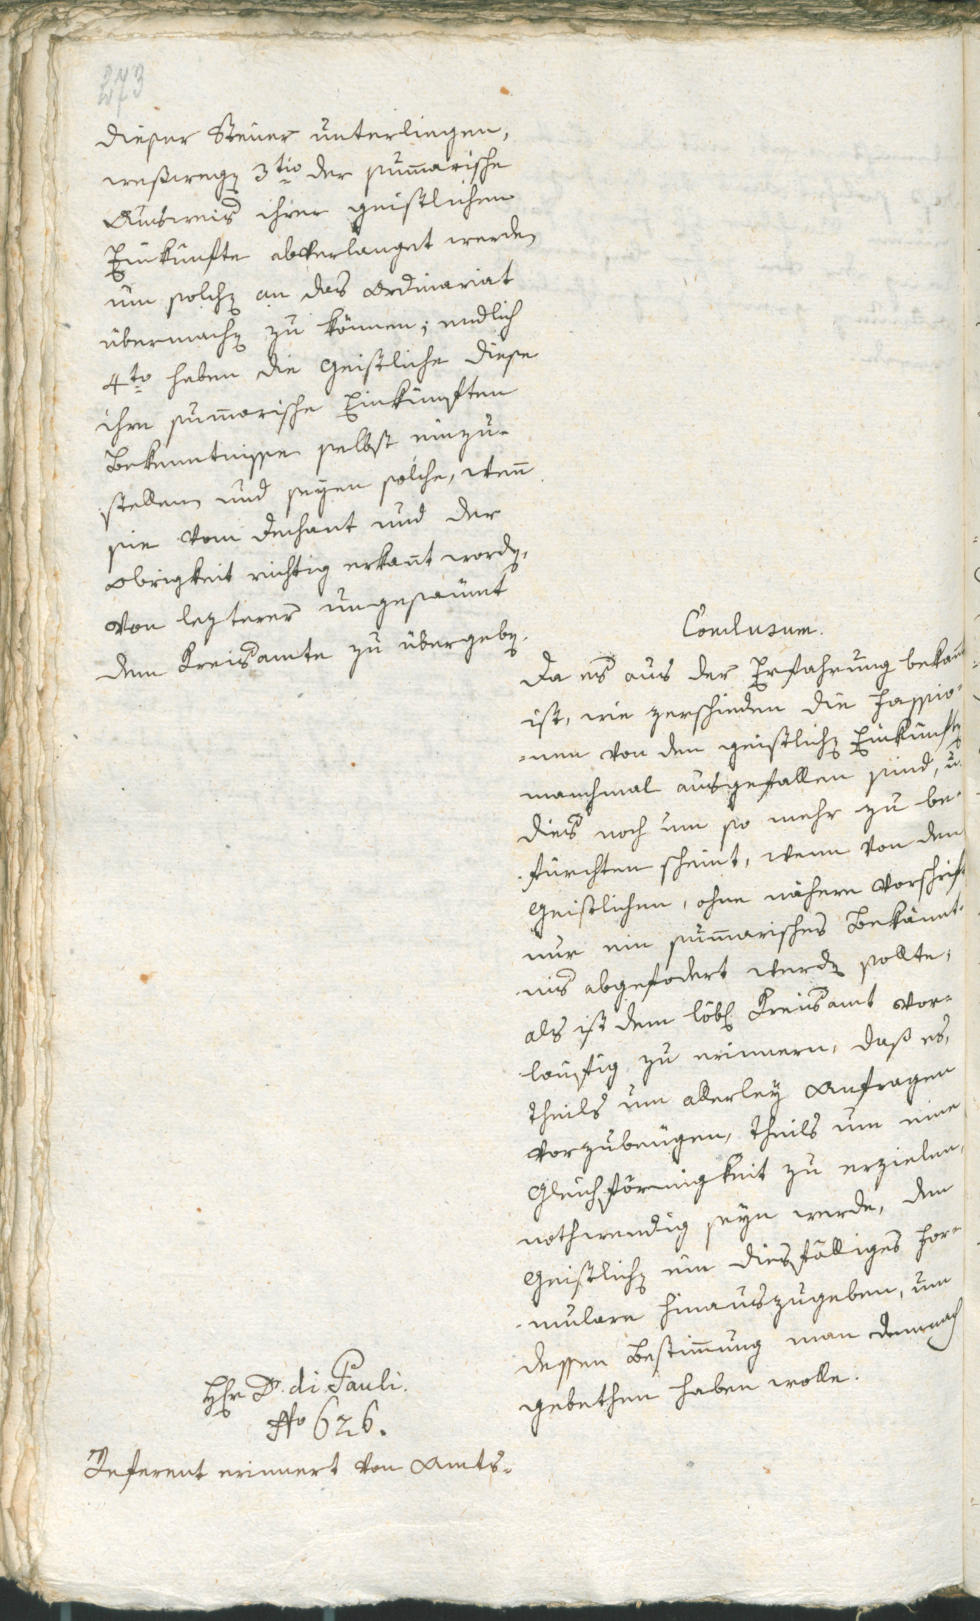 273
dieser Steuer unterliegen,
weßwegen 3tio der summarische
Ausweis ihrer geistlichen
Einkünfte abverlanget werden
um solchen an das Ordinariat
übermachen zu können; endlich
4to haben die Geistliche diese
ihre summarische Einkünften
Bekenntnisse selbst einzu-
stellen und seyen solche, wenn
sie vom Dechant und der
Obrigkeit richtig erkannt worden,
von lezterer ungesäumt
dem Kreisamte zu übergeben.
Hr. D. di Pauli.
No 626.
Referent erinnert von Amts-
Conclusum.
Da es aus der Erfahrung bekannt
ist, wie verschieden die Fassio-
nen von den geistlichen Einkünften
manchmal ausgefallen sind, u.
dies noch um so mehr zu be-
fürchten scheint, wenn von den
Geistlichen, ohne nähere Vorschrift
nur ein summarisches Bekännt-
nis abgefodert werden sollte,
als ist dem löbl. Kreisamt vor-
läufig zu erinnern, daß es,
theils um allerley Anfragen
vorzubeugen, theils um eine
Gleichförmigkeit zu erzielen,
nothwendig seyn werde, den
Geistlichen ein diesfälliges For-
mulare hinauszugeben, um
dessen Bestimmung man demnach
gebethen haben wolle.